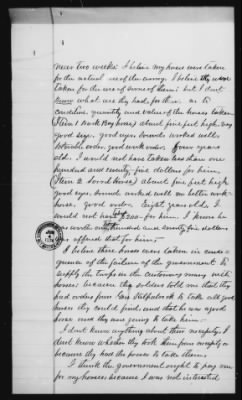 never two weeks. I believe my horses were taken
for the actual use of the army. I believe they were
taken for the use of some of them; but I don't
know what use they had for them. as to
condition quantity and value of the horses taken
(Item 1 Dark Bay horse) about five feet high. Very
good size. good eyes sound worked well
tolerable order, good work order. four years
old. I would not have taken less than one
hundred and seventy five dollars for him.
(Item 2 Sorrel horse) about five feet high
good eyes sound and as well as better work
horse. good order. Eight years old. I
would not have $200 for him. I know he
was worth one hundred and seventy five dollars
was offered that for him.
I believe these horses were taken in conse-
quence of the failure of the government to
supply the troops in the customary way with
horses because the soldiers told me that they
had orders from Gen Kilpatrick to take all good
horses they could find, and that he was good
horse and they were going to take him.
I don't know anything about their necessity. I
don't know whether they took them from necessity or
because they had the horses to take them.
I think the government ought to pay me
for my horses because I was not interested